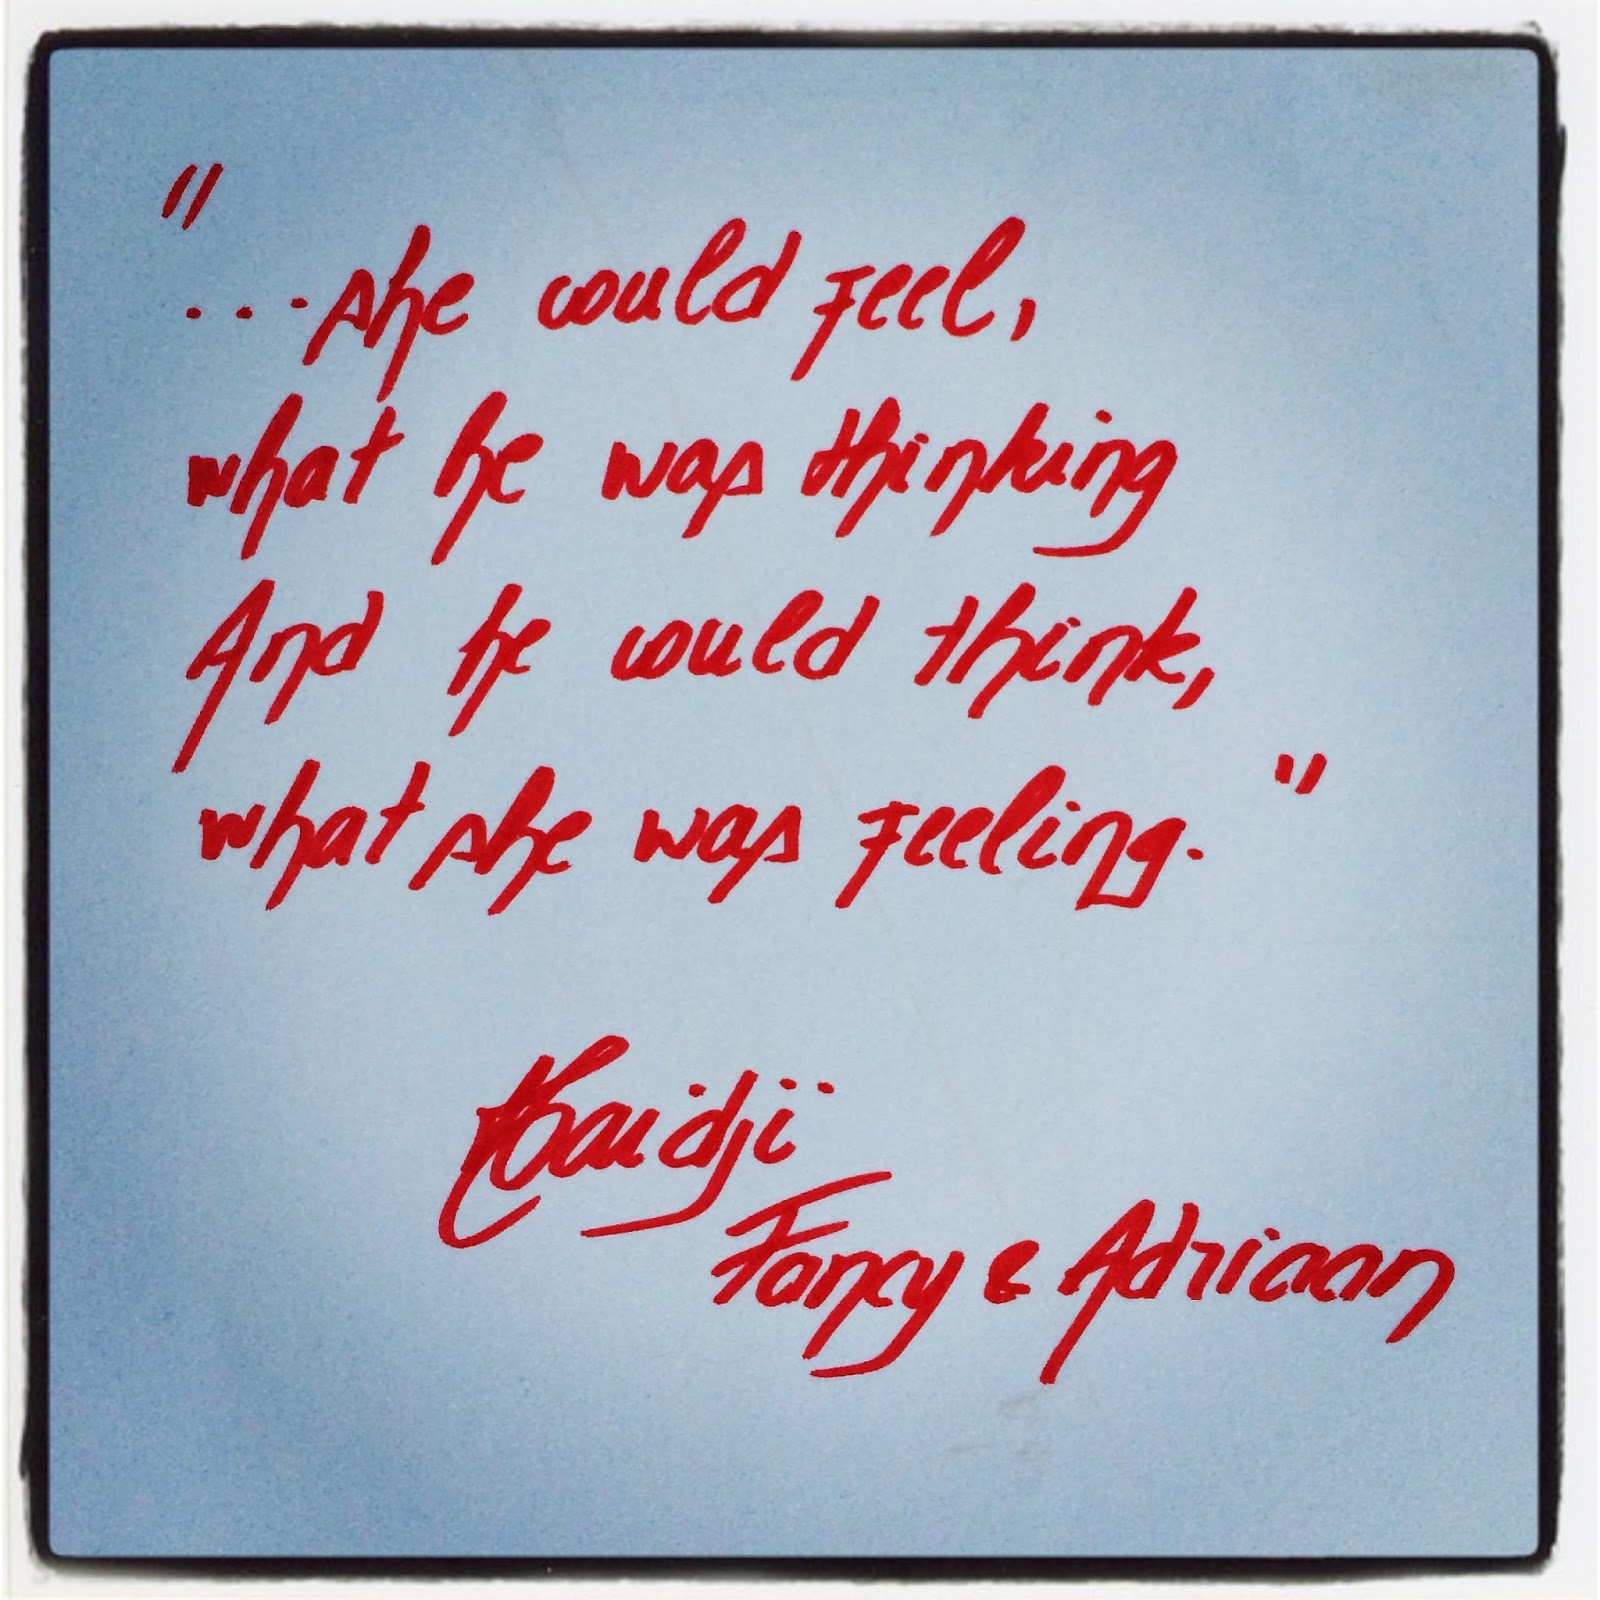 "
...she could feel,
what he was thinking
And he could think,
what she was feeling. "
Haidji
Fancy & Adriaan